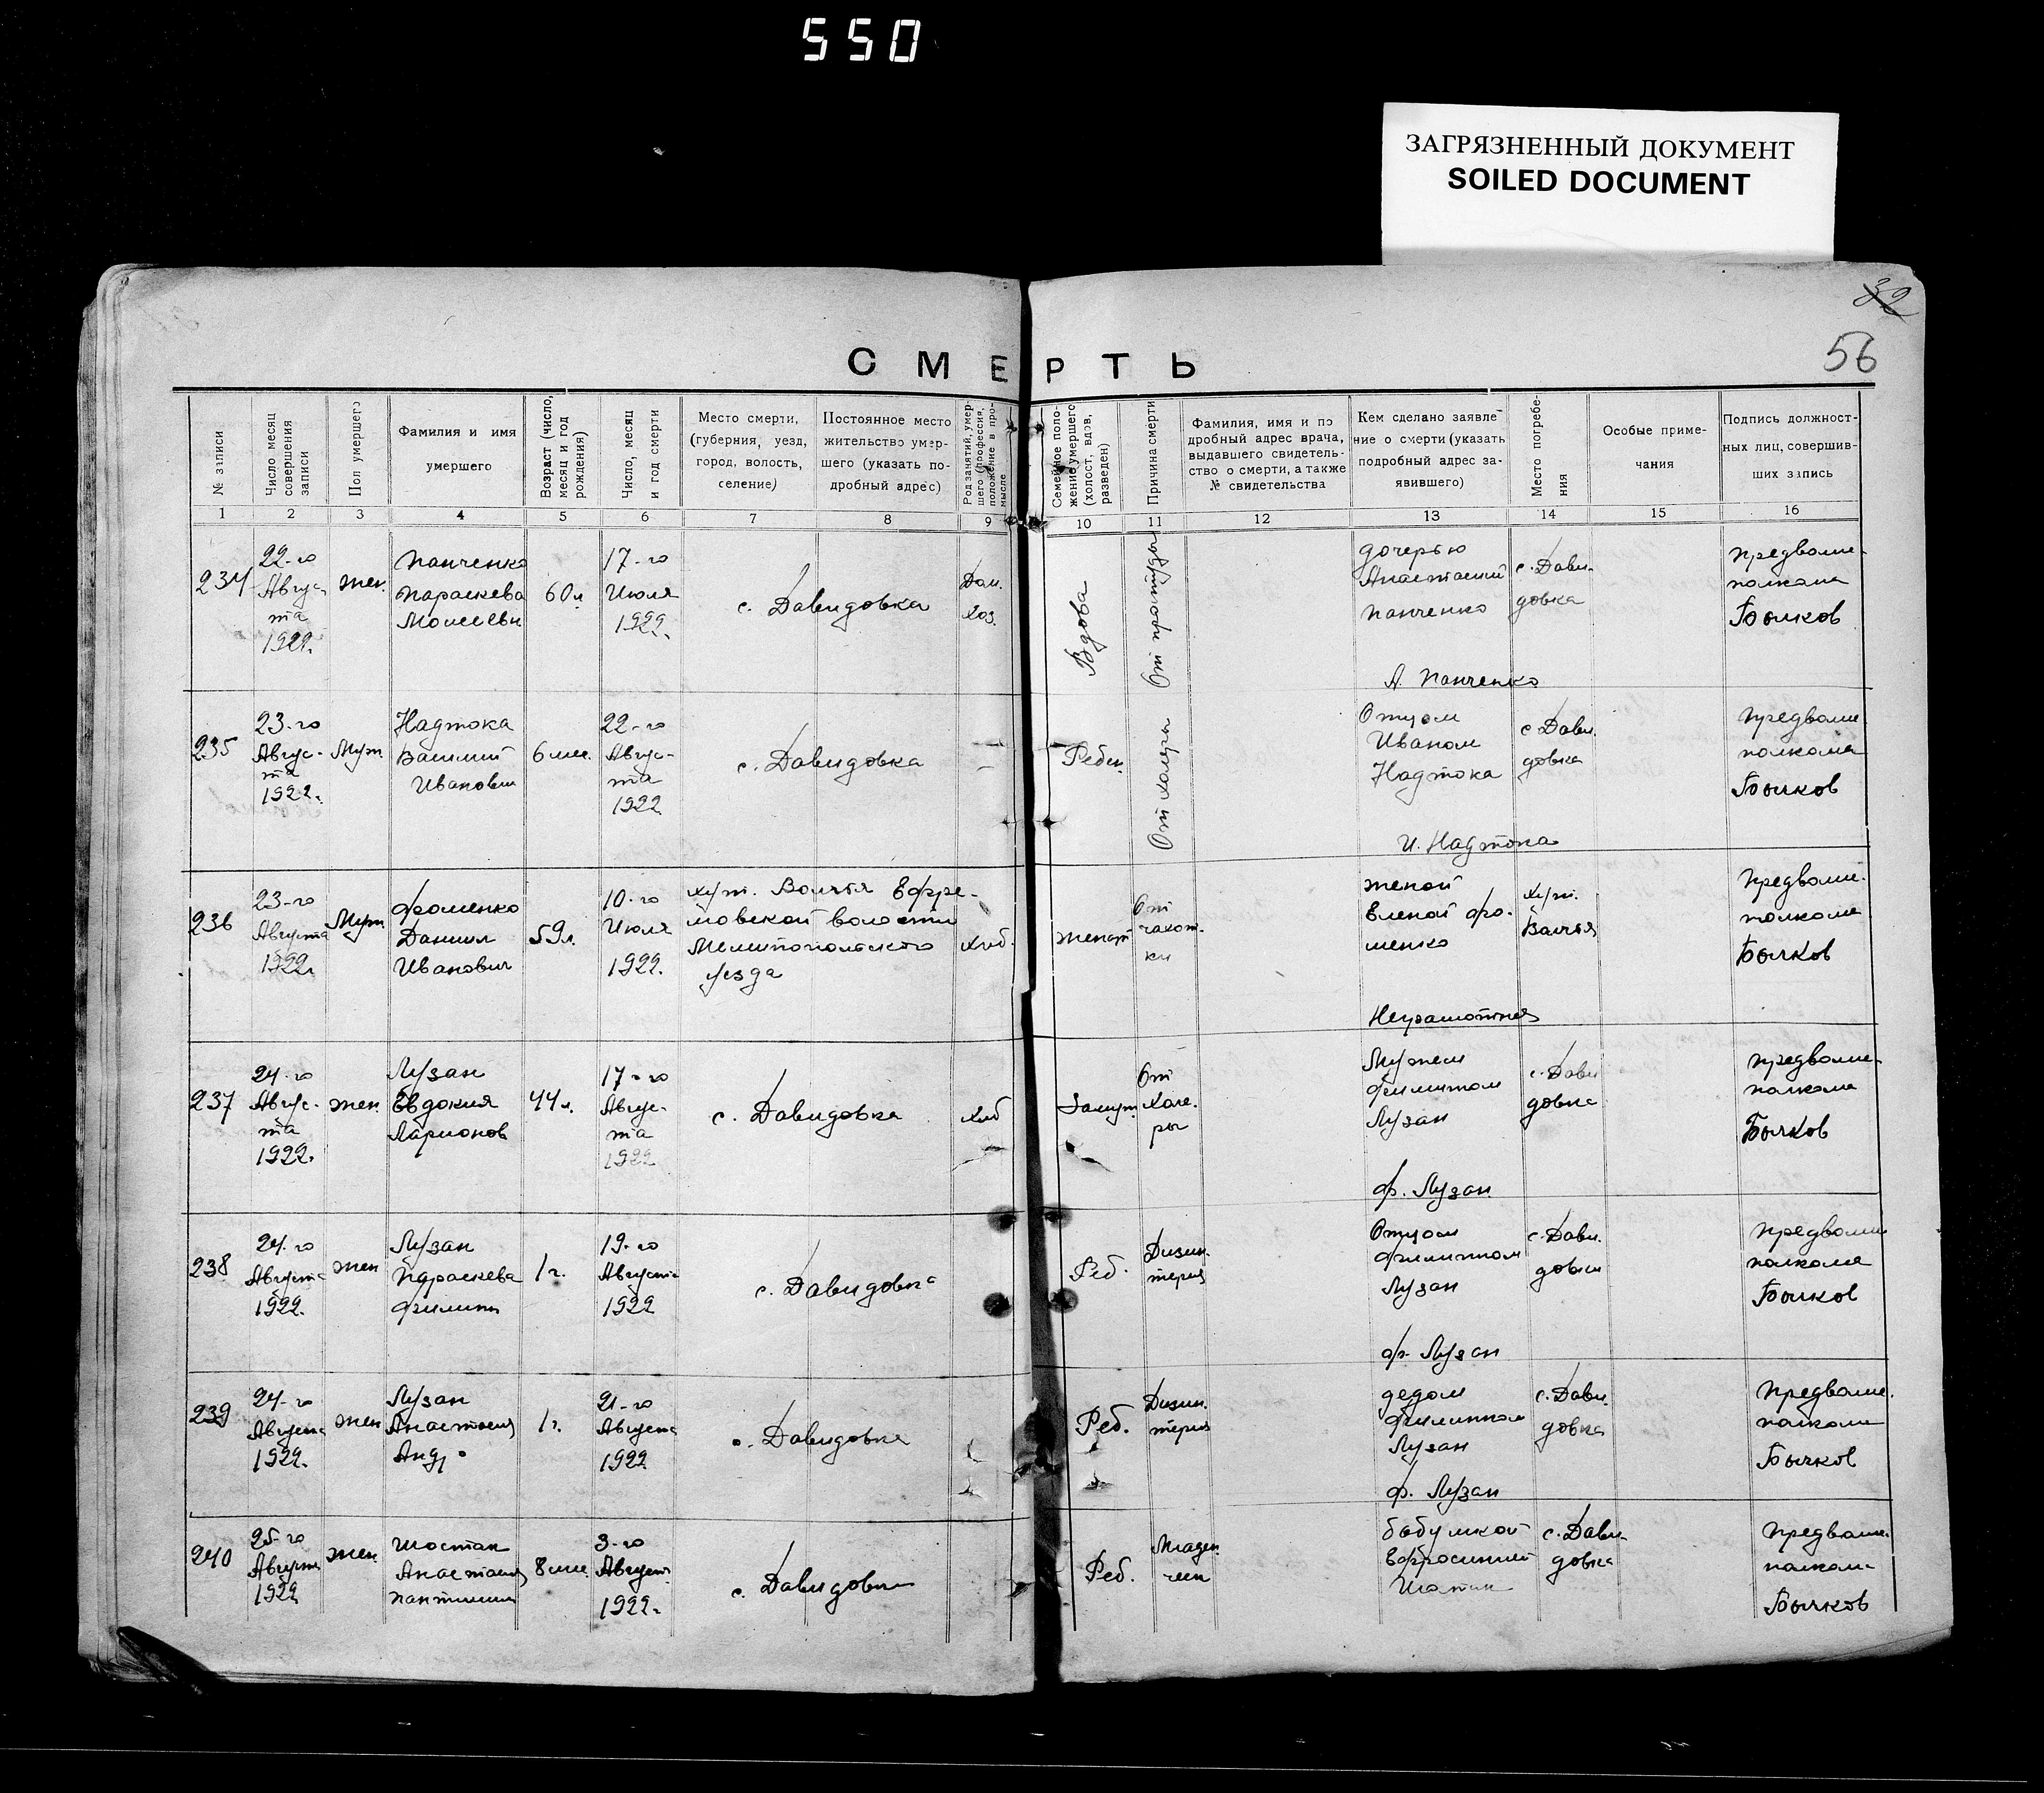 550
ЗАГРЯЗНЕННЫЙ ДОКУМЕНТ
SOILED DOCUMENT
32
56
СМЕРТЬ
№ записи
Число месяц совершения записи
Пол умершего
Фамилия и имя
умершего
Возраст (число, месяц и год рождения)
Число, месяц и год смерти
Место смерти,
(губерния, уезд,
город, волость,
селение)
Постоянное место
жительство умер-
шего (указать по-
дробный адрес)
Род занятий, умер-
шего (профессия,
положение в про-
мысле
Семейное поло-
жение умершего
(холост, вдов,
разведен)
Причина смерти
Фамилия, имя и по
дробный адрес врача,
выдавшего свидетель-
ство о смерти, а также
№ свидетельства
Кем сделано заявле
ние о смерти (указать
подробный адрес за-
явившего)
Место погребе-
ния
Особые приме-
чания
Подпись должност-
ных лиц, совершив-
ших запись
1 2 3 4 5 6 7 8 9 10 11 12 13 14 15 16
234
22-го
Авгус-
та
1922.
жен.
Панченко
Параскева
Моисеевн
60 л.
17-го
Июля
1922.
с. Давидовка
Дом.
Хоз.
Вдова
От простуды
дочерью
Анастасией
Панченко
А. Панченко
с. Дави-
довка
Предволис-
полкома
Бычков
235
23-го
Авгус-
та
1922.
Муж.
Надтока
Василий
Иванович
6 мес.
22-го
Авгус-
та
1922
с. Давидовка
Ребен.
От холеры
Отцом
Иваном
Надтока
И. Надтока
с Дави.
довка
Предволис
полкома
Бычков
236
23-го
Августа
1922г.
Муж
Фоменко
Даниил
Иванович
59 л.
10-го
Июля
1922.
хут. Волчья Ефре-
мовской волости
Мелитопольского
уезда
Хлеб.
Женат
От
чахот-
ки
женой
Еленой Фо-
менко
хут.
Волчья
Предволис-
полкома
Бычков
237
24-го
Авгус-
та
1922.
жен
Лузан
Евдокия
Ларионов
44 л.
17-го
Авгус-
та
1922
с. Давидовка
Хлеб
Замуж.
От
Холе-
ры
Мужем
Филиппом
Лузан
Ф. Лузан
с. Дави
довка
Предволис-
полкома
Бычков
238
24-го
Августа
1922.
жен
Лузан
Параскева
Филипп
1 г.
19-го
Августа
1922
с. Давидовка
Реб.
Дизин-
терия
Отцом
Филиппом
Лузан
Ф. Лузан
с. Дави.
довка
Предволис
полкома
Бычков
239
24-го
Августа
1922.
жен
Лузан
Анастасия
Анд
1 г.
21-го
Августа
1922
с. Давидовка
Реб.
Дизин-
терия
дедом
Филиппом
Лузан
Ф. Лузан
с. Дави.
довка
Предволис.
полкома
Бычков
240
25-го
Августа
1922
жен.
Шостак
Анастасия
8 мес.
3-го
Август
1922.
с. Давидовка
Реб.
Младен
ческ
бабушкой
Ефросинией
с. Дави-
довка
Предволис.
полком-
Бычков